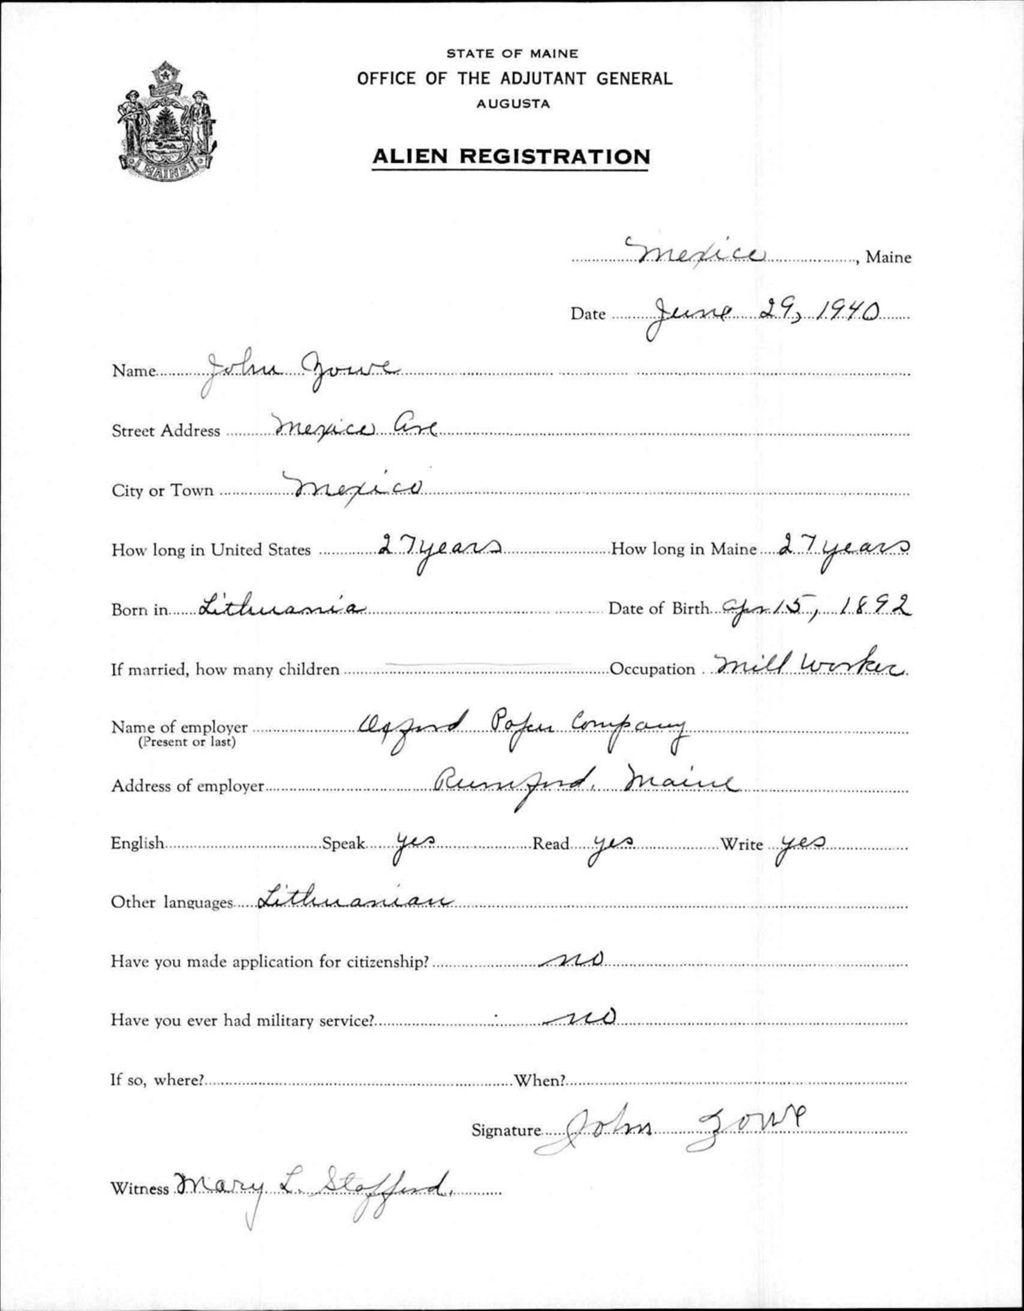 STATE OF MAINE
OFFICE OF THE ADJUTANT GENERAL
AUGUSTA
ALIEN REGISTRATION
MAINE
Mexico, Maine
Date June 29, 1940
Name John Zowe
Street Address Mexico Ave
City or Town Mexico
How long in United States 27 years How long in Maine 27 years
Born in Lithuania Date of Birth Apr 15, 1892
If married, how many children Occupation Mill Worker
Name of employer Oxford Paper Company
(Present or last)
Address of employer Rumford, Maine
English Speak yes Read yes Write yes
Other languages Lithuanian
Have you made application for citizenship? no
Have you ever had military service? no
If so, where? When?
Signature John Zowe
Witness Mary L. Stafford.